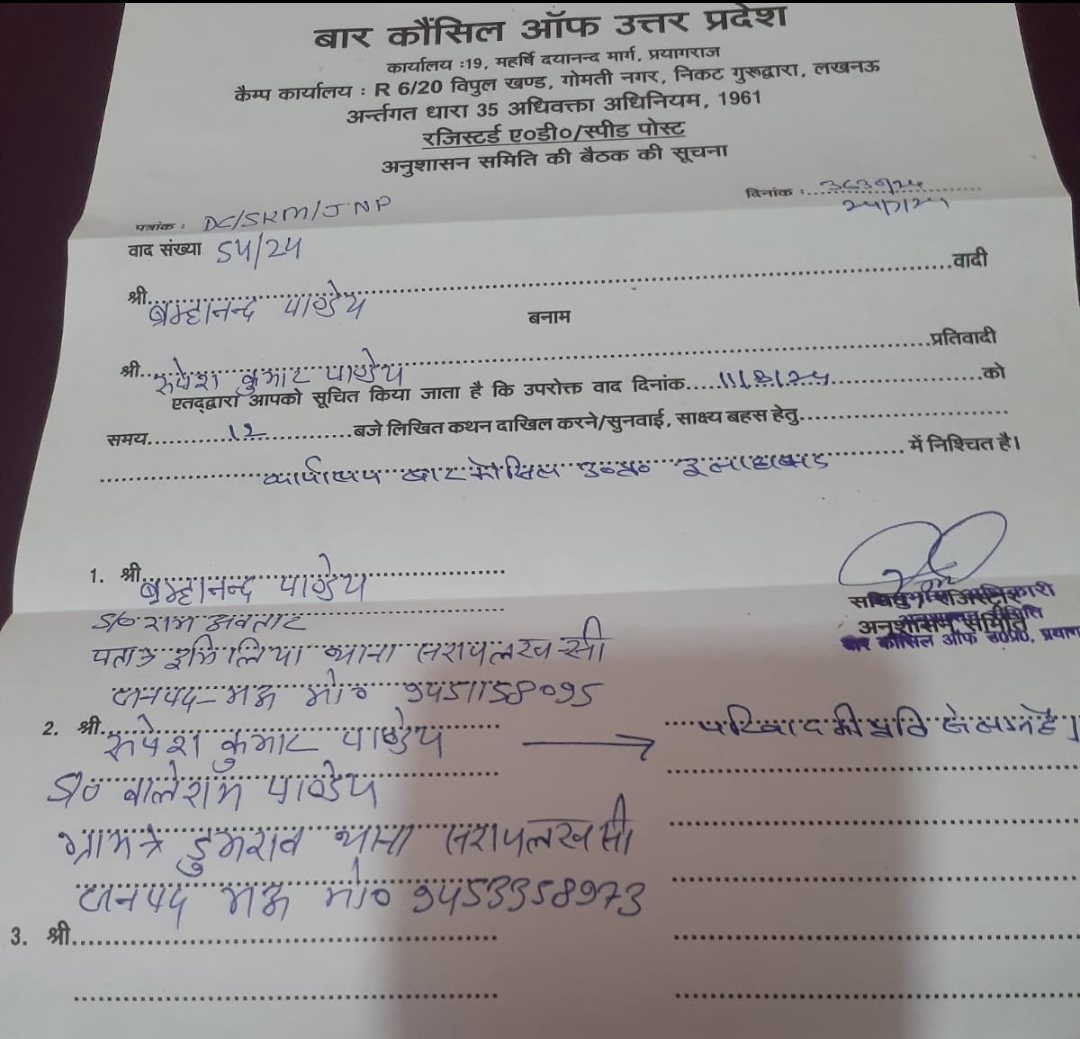 बार कौंसिल ऑफ उत्तर प्रदेश
कार्यालय :19, महर्षि दयानन्द मार्ग, प्रयागराज
कैम्प कार्यालय : R 6/20 विपुल खण्ड, गोमती नगर, निकट गुरूद्वारा, लखनऊ
अर्न्तगत धारा 35 अधिवक्ता अधिनियम, 1961
रजिस्टर्ड ए०डी०/स्पीड पोस्ट
अनुशासन समिति की बैठक की सूचना
पत्रांक : DC/SKM/JNP दिनांक :
वाद संख्या 54/24
श्री ब्रम्हानन्द पाण्डेय वादी
बनाम
श्री रूपेश कुमार पाण्डेय प्रतिवादी
एतद्द्वारा आपको सूचित किया जाता है कि उपरोक्त वाद दिनांक को
समय 12 बजे लिखित कथन दाखिल करने/सुनवाई, साक्ष्य बहस हेतु
कार्यालय बार कौंसिल उ०प्र० इलाहाबाद में निश्चित है।
1. श्री ब्रम्हानन्द पाण्डेय
S/o राम अवतार
पता इमिलिया थाना सरायलखन्सी
जनपद-मऊ मो० 9451158095
अनुशासन समिति
बार कौंसिल ऑफ उ०प्र०, प्रयाग
2. श्री रूपेश कुमार पाण्डेय → परिवाद की प्रति संलग्न है।
S/o बालेराम पाण्डेय
ग्राम डुमराव थाना सरायलखन्सी
जनपद मऊ मो० 9453358973
3. श्री